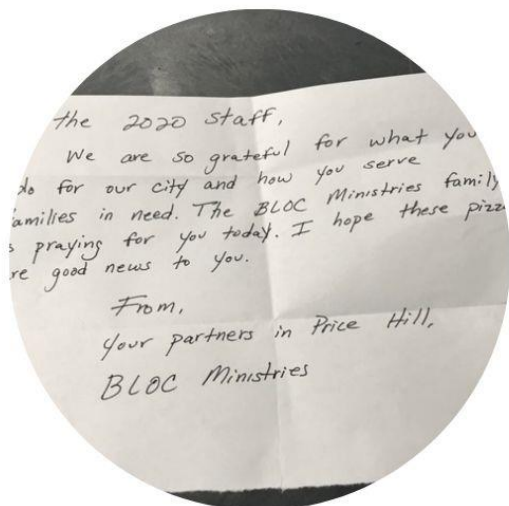 the 2020 staff,
We are so grateful for what you
do for our city and how you serve
families in need. The BLOC Ministries family
praying for you today. I hope these pizz
re good news to you.
From,
your partners in Price Hill,
BLOC Ministries